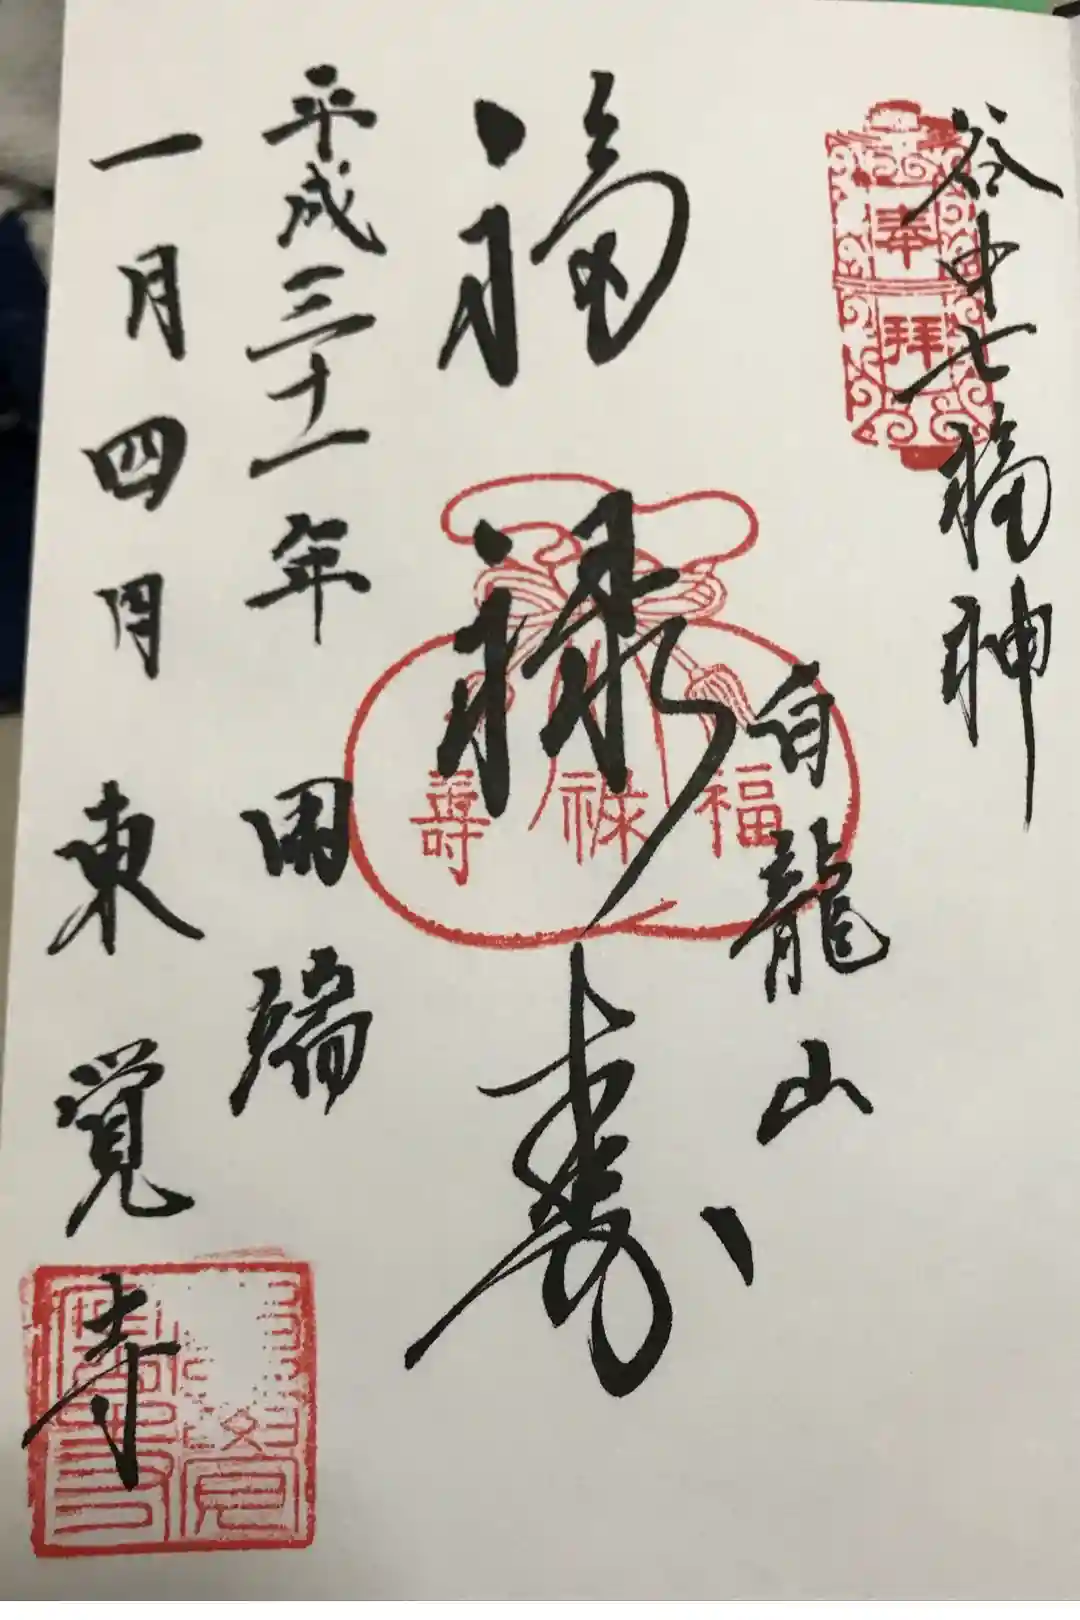 谷中七福神
奉拝
白龍山
福禄寿
福 禄 壽
平成三十一年 田端
一月四日 東覚寺